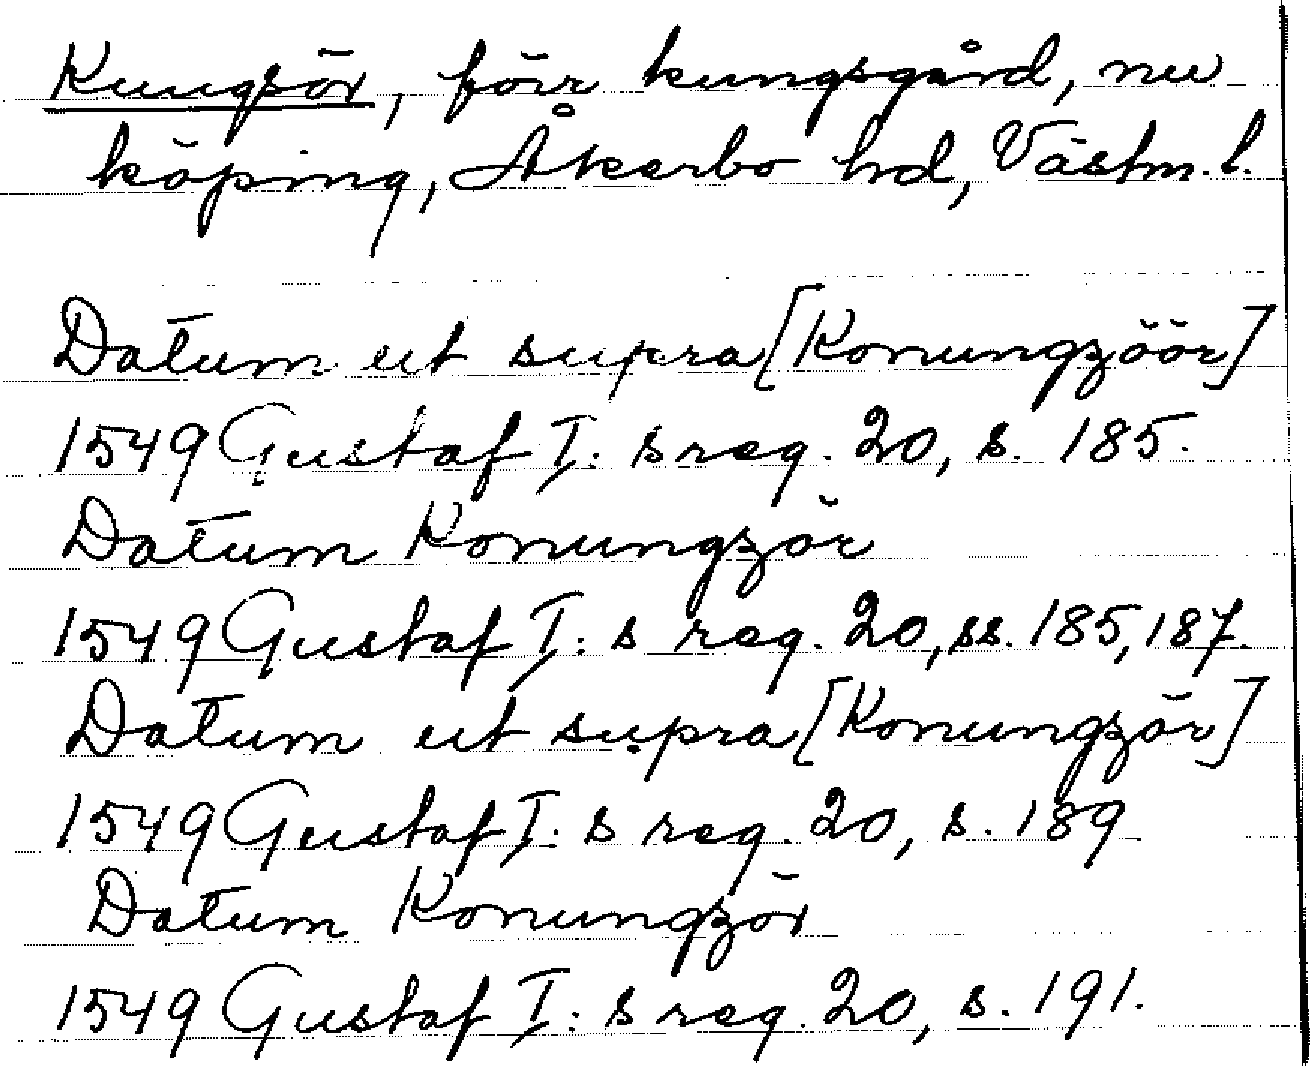 Kungsör, förr kungsgård, nu
köping, Åkerbo hd, Västm. l.
Datum ut supra [Konungzöör]
1549 Gustaf I: s reg. 20, s. 185.
Datum Konungzör
1549 Gustaf I: s reg. 20, ss. 185, 187.
Datum ut supra [Konungzör]
1549 Gustaf I: s reg. 20, s. 189
Datum Konungzör
1549 Gustaf I: s reg. 20, s. 191.